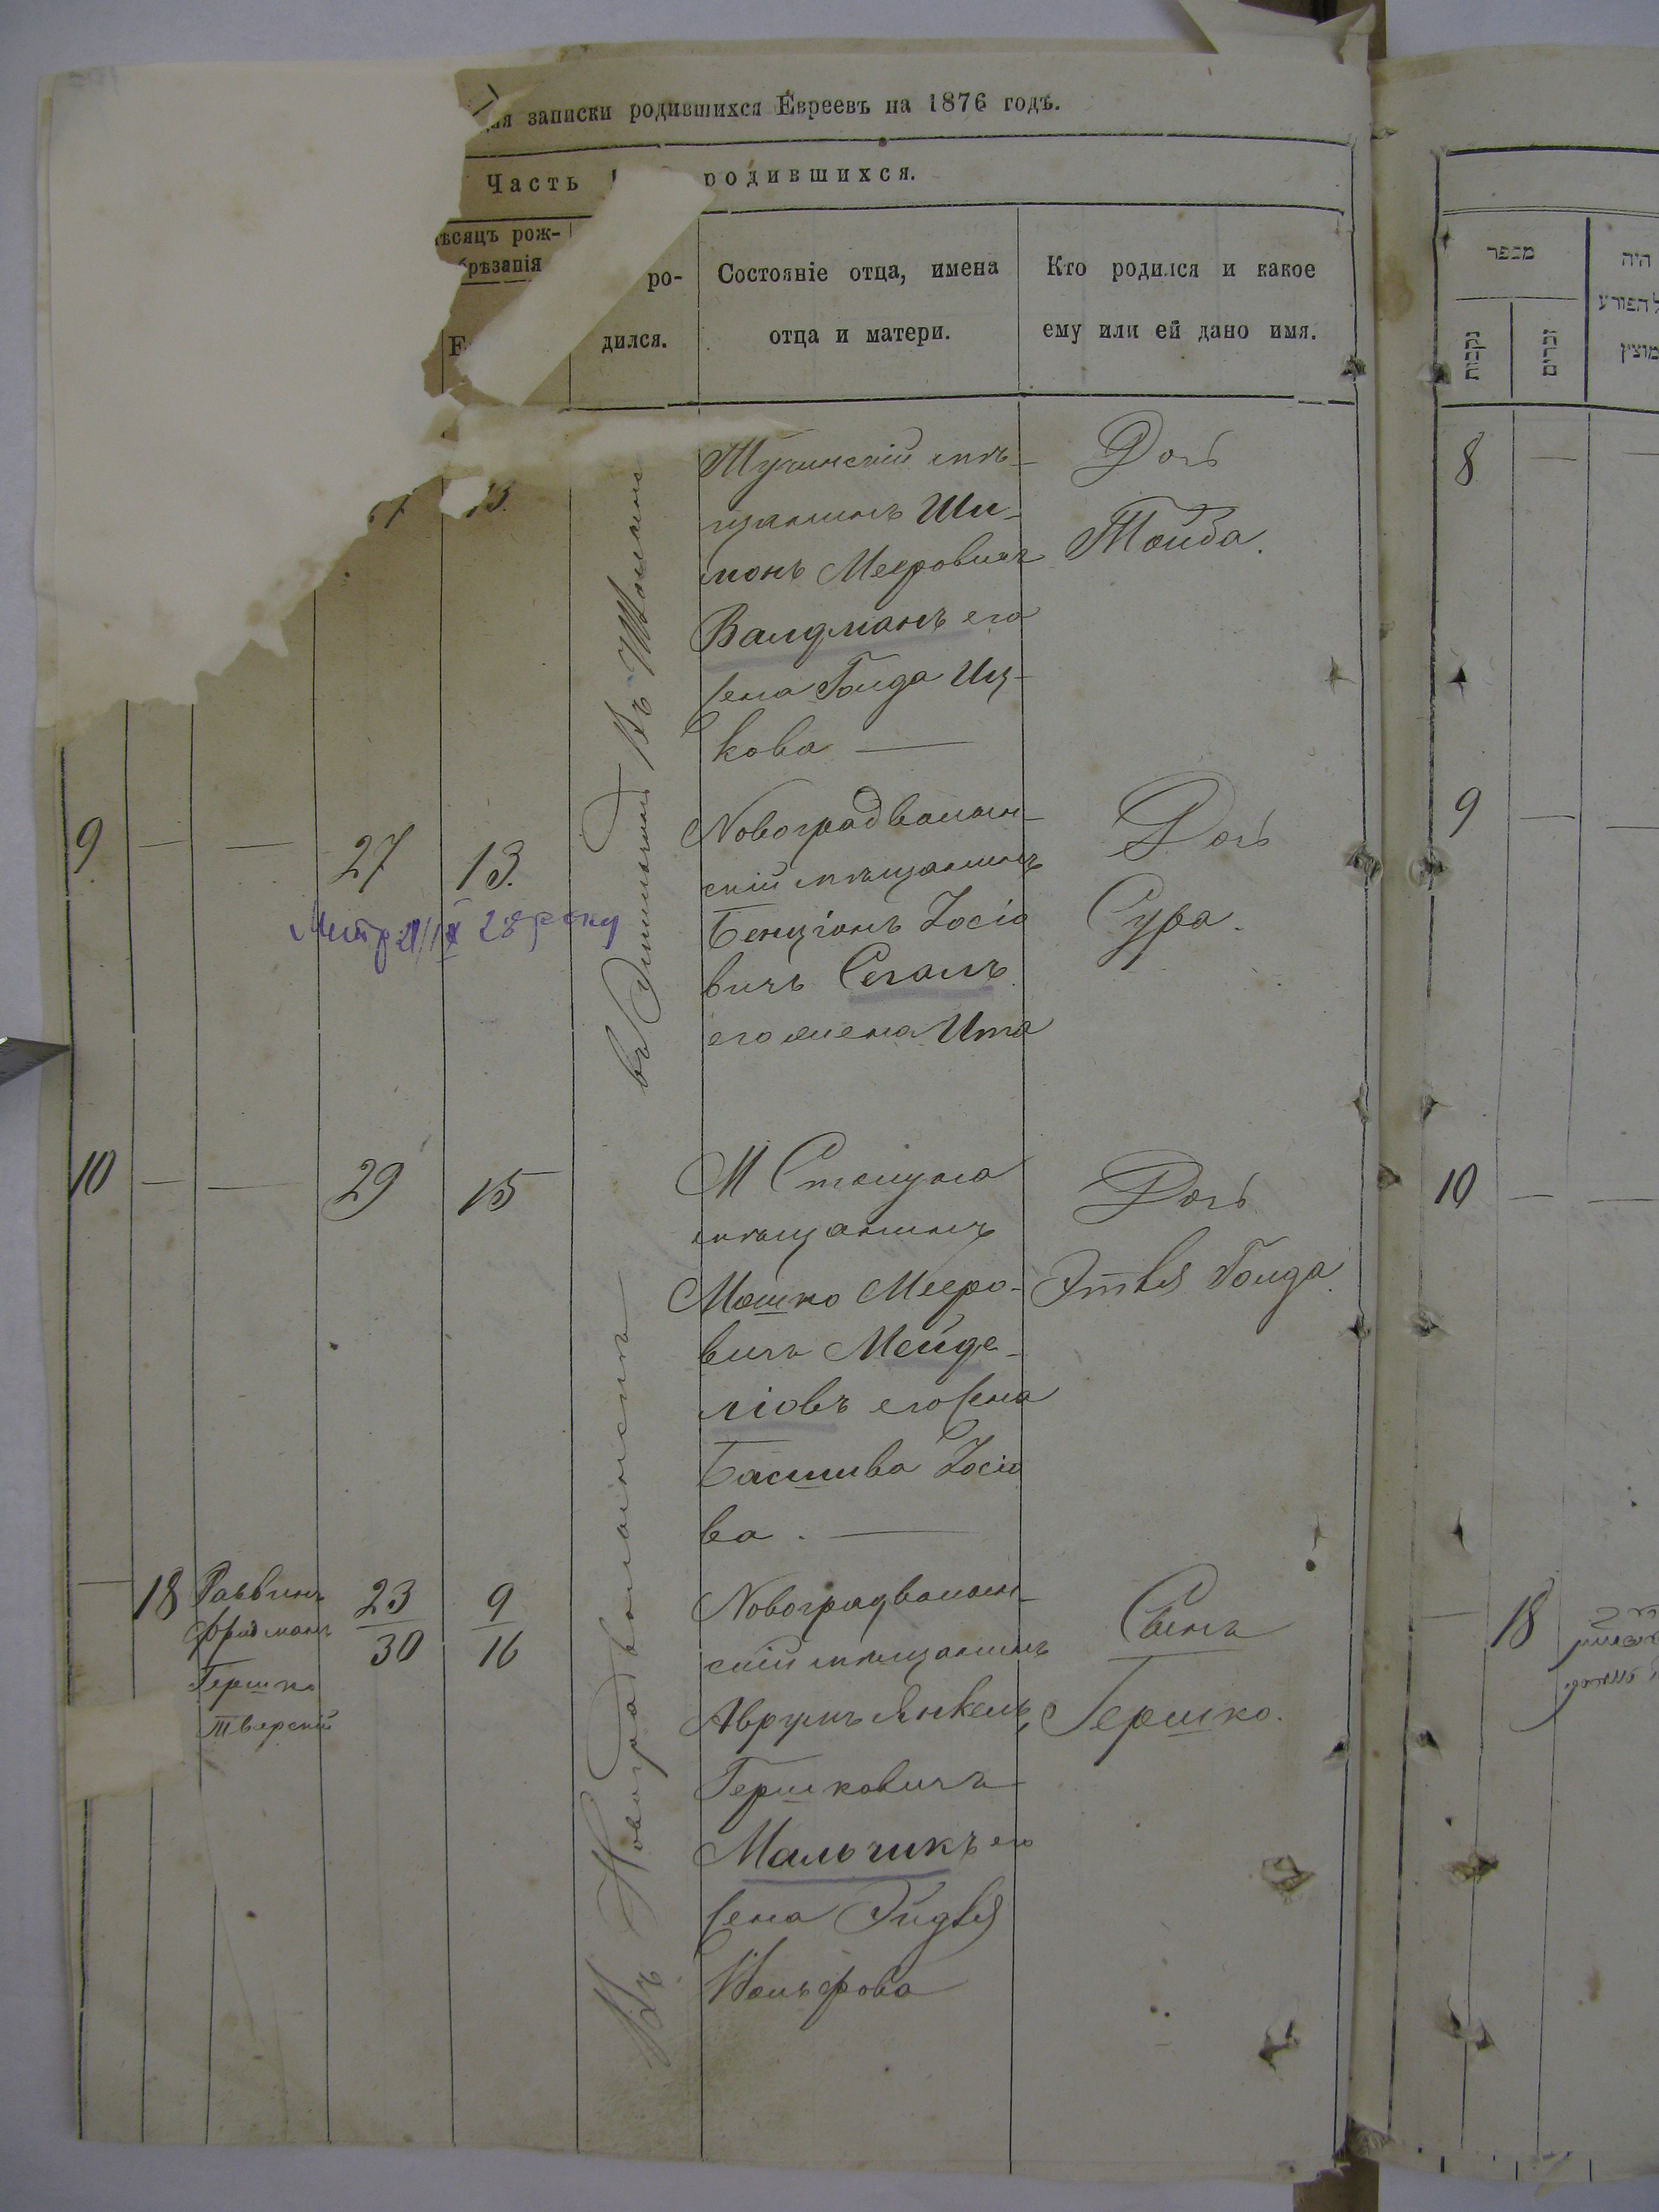 для записки родившихся Евреевъ на 1876 годъ.
Часть родившихся.
мѣсяцъ рож-
брѣзанія
ро-
дился.
Состояніе отца, имена
отца и матери.
Кто родился и какое
ему или ей дано имя.
13.
Тучинскій мѣ-
щанинъ Ши-
монъ Мееровичъ
Валдманъ его
жена Голда Иц-
кова —
Дочь
Тойба.
9 — — 27 13.
Метр 28 року
Новоградволын-
скій мѣщанинъ
Бенціонъ Іосіо
вичъ Сегалъ
его жена Ита
Дочь
Сура.
10 — — 29 15
М Степуна
мѣщанинъ
Мошко Мееро-
вичъ Мейде-
ліовъ его жена
Басшива Іосіо
ва. —
Дочь
Этля Голда.
— 18 Раввинъ
Фридманъ
Гершко
Тверскій
23 9
30 16
Новоградволын-
скій мѣщанинъ
Аврумъ Янкель
Гершковичъ
Мальчикъ его
жена Эйдля
Вольфова
Сынъ
Гершко.
Въ Новоградволынскѣ
מספר
נקבות
זכרים
היה
המוצין
8 — —
9 — —
10 — —
— 18